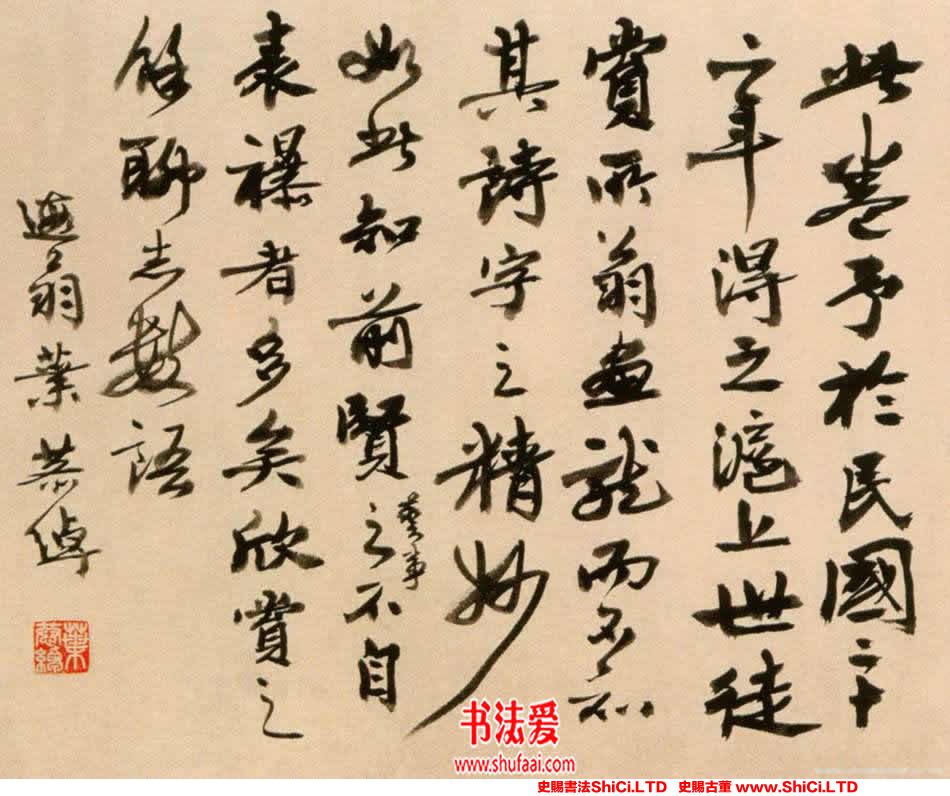 此卷予於民國二十
二年得之滬上世徒
賞所翁畫龍而不知
其詩字之精妙
如此知前賢之藝事不自
表襮者多矣欣賞之
餘聊志數語
遐翁葉恭綽
书法爱
www.shufaai.com
史賜書法ShiCi.LTD 史賜古董 www.ShiCi.LTD